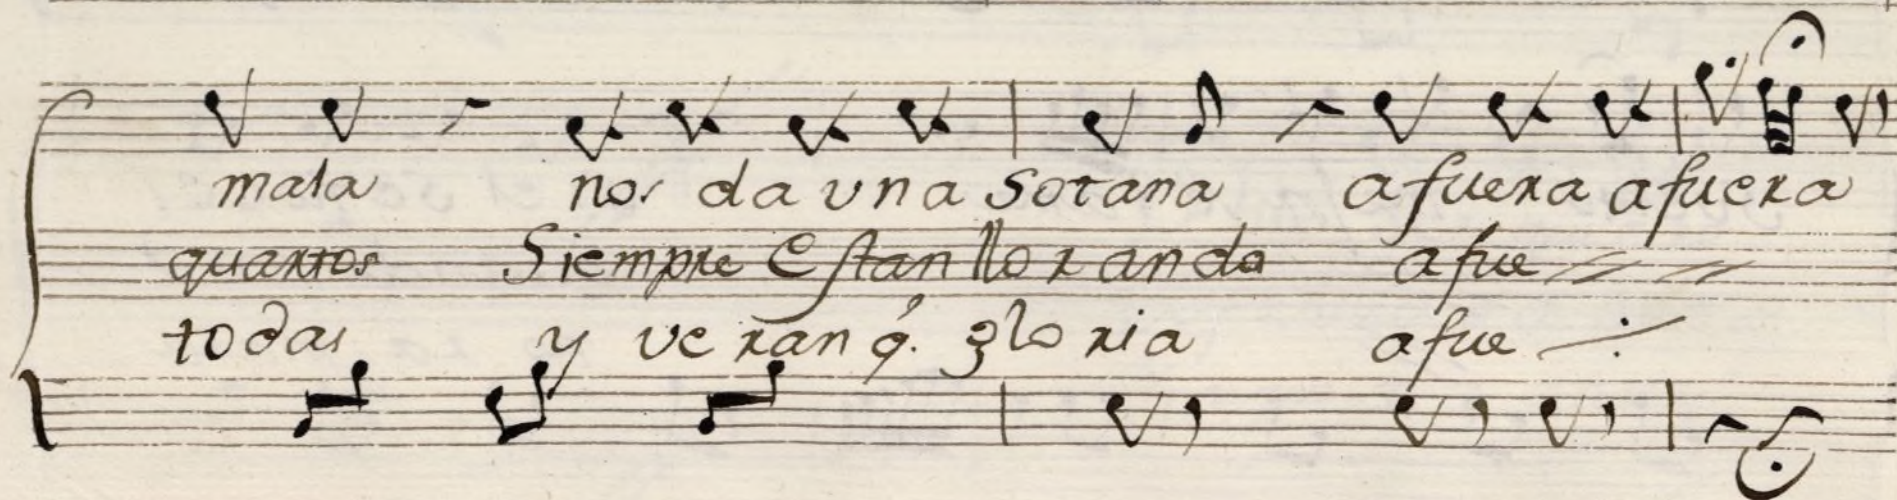 mala nos da una Sotana afuera afuera
quartos Siempre Estan llorando afue
todas y veran q. gloria afue